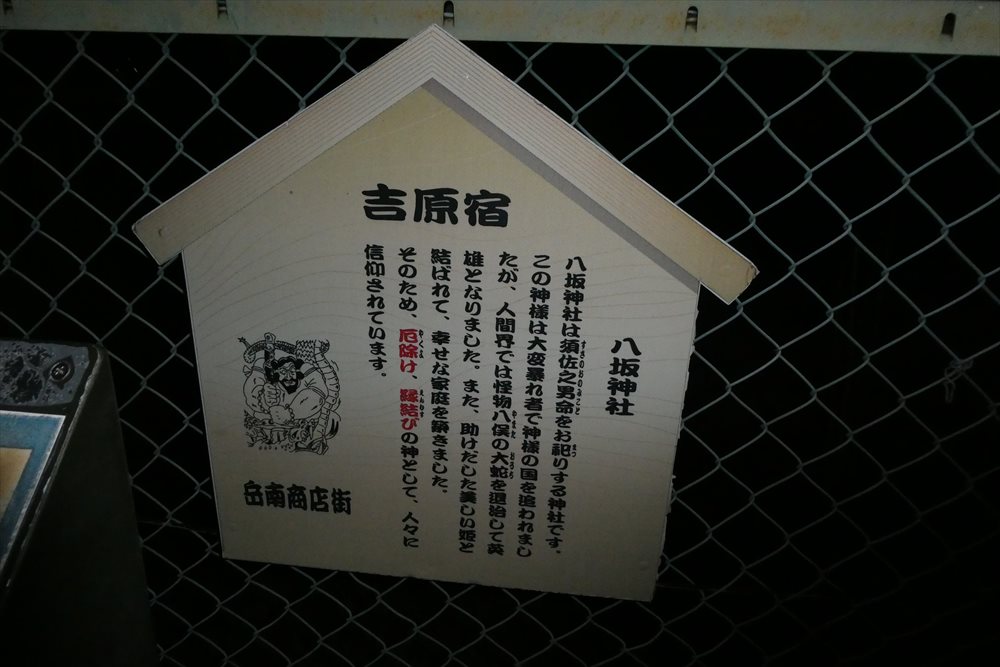 吉原宿
八坂神社
八坂神社は須佐之男命をお祀りする神社です。
この神様は大変暴れ者で神様の国を追われまし
たが、人間界では怪物八俣の大蛇を退治して英
雄となりました。また、助けだした美しい姫と
結ばれて、幸せな家庭を築きました。
そのため、厄除け、縁結びの神として、人々に
信仰されています。
岳南商店街